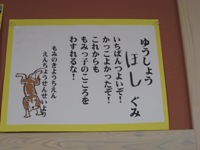 ゆうしょう
ほしぐみ
いちばんつよいぞ!
かっこよかったぞ!
これからも
もみっ子のこころを
わすれるな!
もみのきようちえん
えんちょうせんせいより